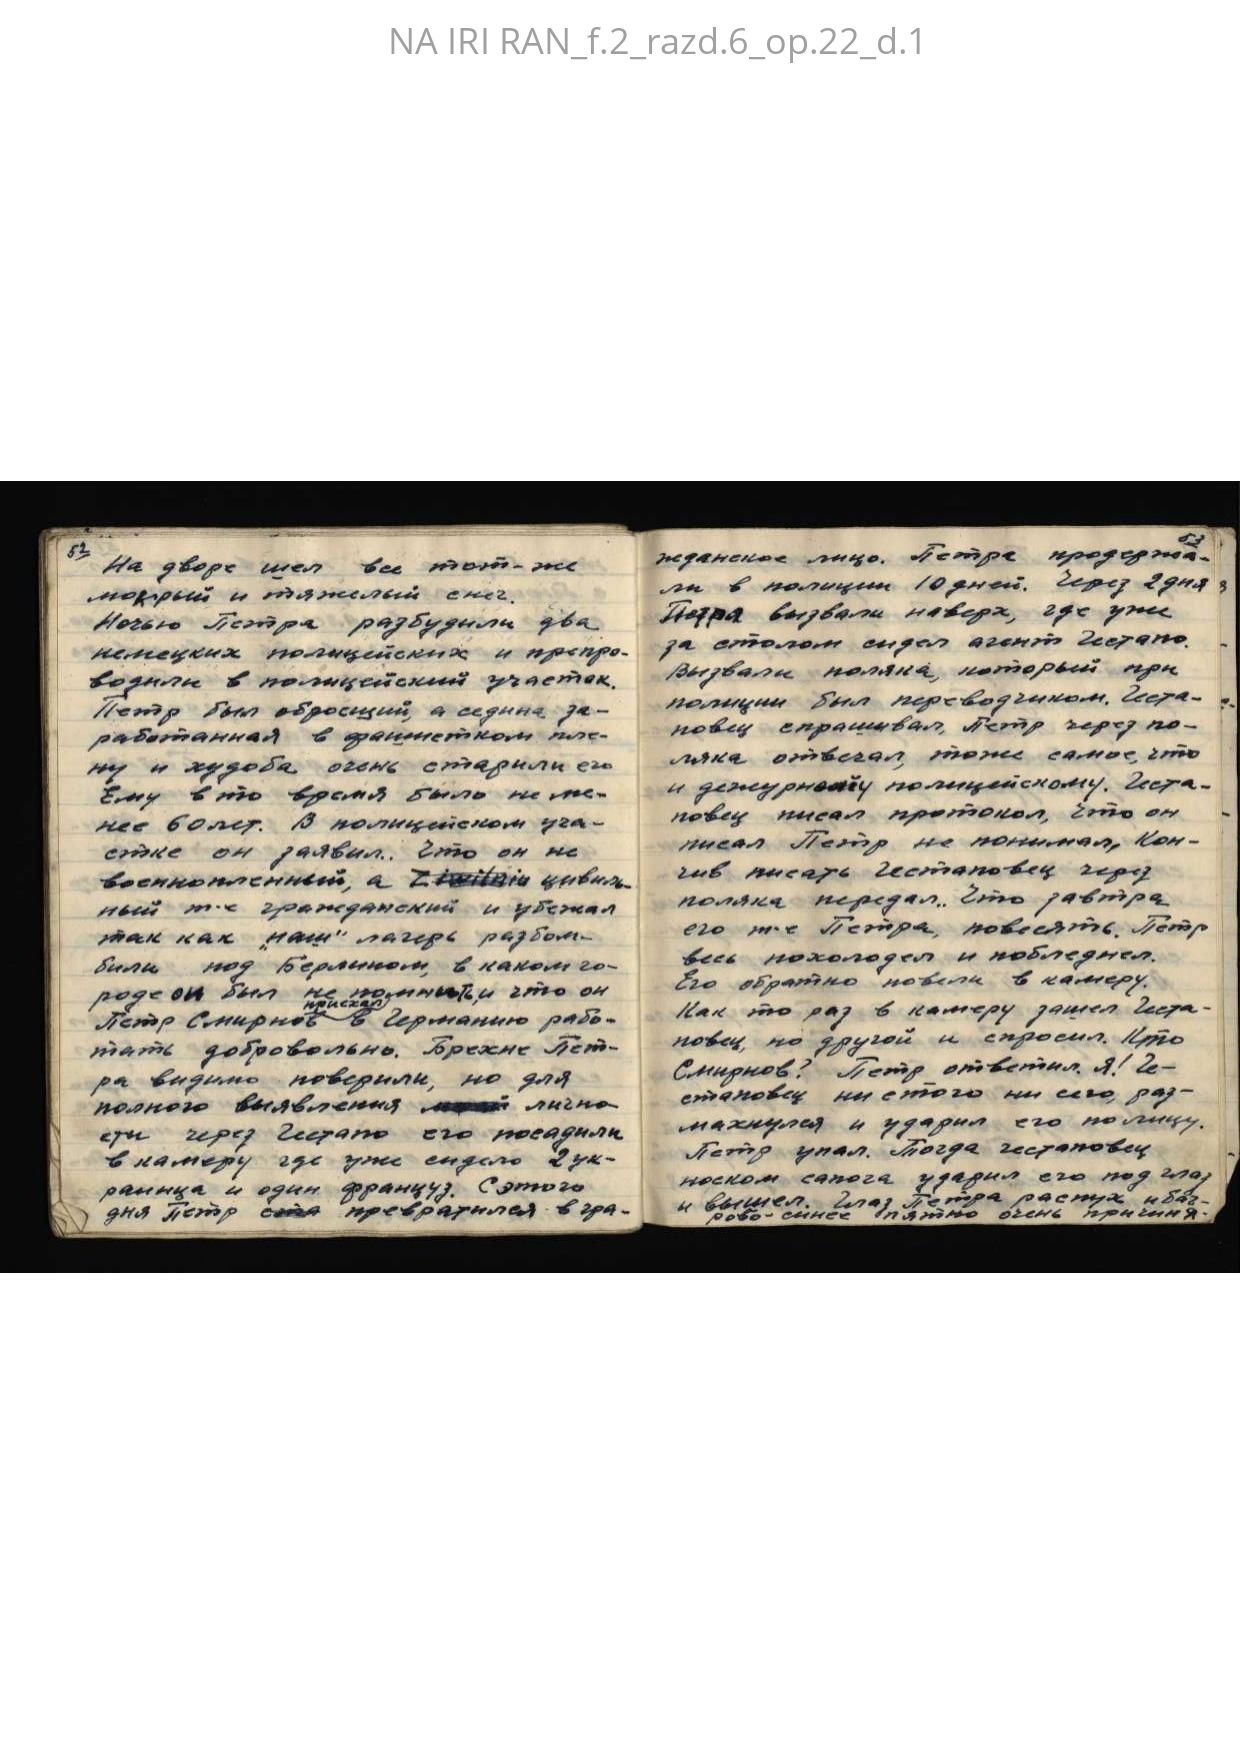 NA IRI RAN_f.2_razd.6_op.22_d.1
52
На дворе шел все тот-же
мокрый и тяжелый снег.
Ночью Петра разбудили два
немецких полицейских и препро-
водили в полицейский участок.
Петр был обросший, а седина за-
работанная в фашистком пле-
ну и худоба очень старили его
Ему в то время было не ме-
нее 60 лет. В полицейском уча-
стке он заявил.. Что он не
военнопленный, а Ziwilniu цивиль-
ный т-е гражданский и убежал
так как „наш" лагерь разбом-
били под Берлином, в каком го-
роде он был не помнить, и что он
приехал
Петр Смирнов в Германию рабо-
тать добровольно. Брехне Пет-
ра видимо поверили, но для
полного выявления лично-
сти через Гестапо его посадили
в камеру где уже сидело 2 ук-
раинца и один француз. С этого
дня Петр ста превратился в гра-
53
жданское лицо. Петра продержа-
ли в полиции 10 дней. Через 2 дня
Петра вызвали наверх, где уже
за столом сидел агент Гестапо.
Вызвали поляка, который при
полиции был переводчиком. Геста-
повец спрашивал, Петр через по-
ляка отвечал, тоже самое, что
и дежурному полицейскому. Геста-
повец писал протокол, что он
писал Петр не понимал, Кон-
чив писать Гестаповец через
поляка передал.. Что завтра
его т-е Петра, повесять. Петр
весь похолодел и побледнел.
Его обратно повели в камеру.
Как то раз в камеру зашел Геста-
повец, но другой и спросил. Кто
Смирнов? Петр ответил. Я! Ге-
стаповец ни стого ни сего, раз-
махнулся и ударил его по лицу.
Петр упал. Тогда гестаповец
носком сапога ударил его под глаз
и вышел. Глаз Петра распух и баг-
рово-синее пятно очень причиня-